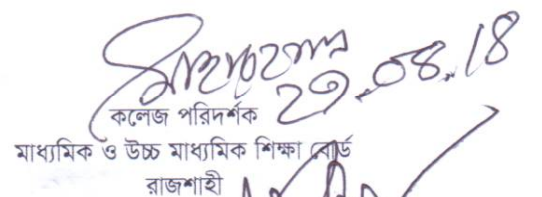 ২৩.০৪.১৪
কলেজ পরিদর্শক
মাধ্যমিক ও উচ্চ মাধ্যমিক শিক্ষা বোর্ড
রাজশাহী